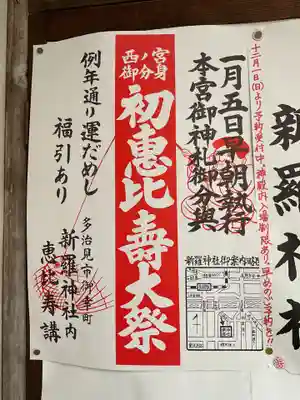 十二月一日(日)より予約受付中、神殿内入場制限あり、早めのご予約を!!
一月五日早朝執行
本宮御神札御分與
西ノ宮
御分身
初惠比壽大祭
例年通り運だめし
福引あり
多治見市御幸町
新羅神社内
恵比寿講
新羅神社御案内略図
新羅神社